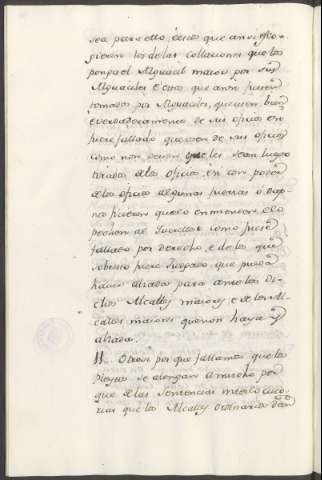 sea para ello, e estos que ansi esco-
gieren los de las collaciones que los
ponga el Alguacil maior por sus
Alguaciles e estos que ansi fueren
tomados por Alguaciles, que usen bien
e verdaderamente de sus oficios e si
fuere fallado que usen de sus oficios
como non deven que les sean luego
tirados de los oficios, e si con poder
de los oficios algunas fuerzas o da-
nos ficieren que lo enmienden, e lo
pechen al querelloso como fuere
fallado por derecho e de lo que
sobre esto fuere Juzgado que puedan
haver alzada para ante los di-
chos Alcalles maiores, e de los Al-
calles maiores que non haya
alzada.
11. Otrosi por que fallamos que los
Pleytos se alongan mucho por
que de las Sentencias interlocuto-
rias que los Alcalles Ordinarios dan